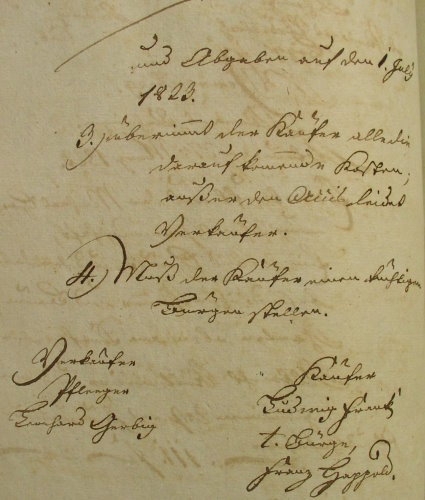 und Abgaben auf den 1. July
1823.
3.) übernimmt der Käufer alle die
darauf kommende Kosten,
außer den Acciis leidet
Verkäufer.
4.) Muß der Käufer einen düchtigen
Bürgen stellen.
Verkäufer
Pfleeger
Leonhard Gerbig
Käufer
Ludwig Frank
t. Bürge,
Franz Happold.